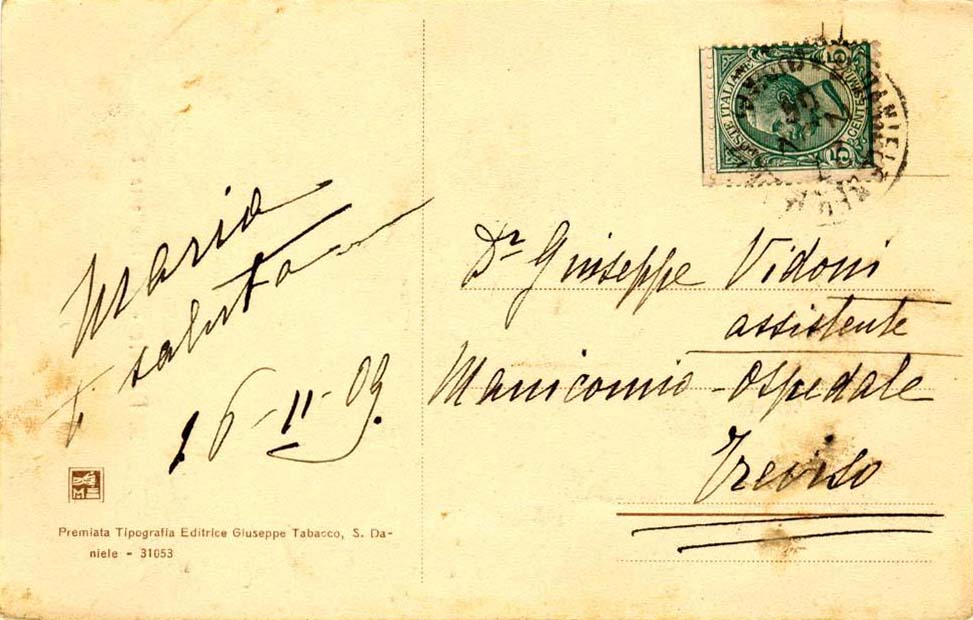 Maria
saluta
16-11-09.
ME
Premiata Tipografia Editrice Giuseppe Tabacco, S. Da-
niele - 31053
POSTE ITALIANE
CENTESIMI
5 5
Dr Giuseppe Vidoni
assistente
Manicomio - Ospedale
Treviso